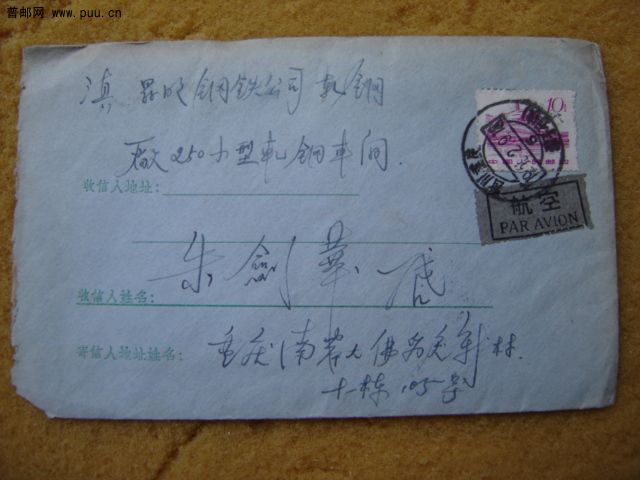 普邮网 www.puu.cn
滇 昆明钢铁公司轧钢
厂 250小型轧钢车间.
收信人地址:
10
航空
PAR AVION
朱剑华 启
收信人姓名:
寄信人地址姓名: 重庆南岸大佛
十一栋 105号